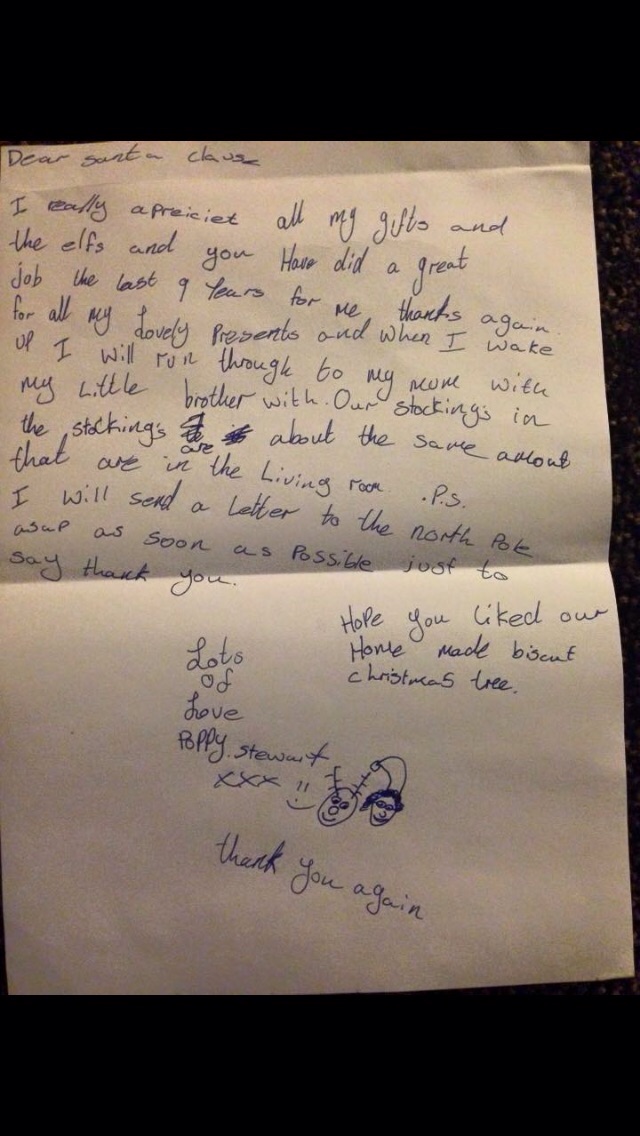 Dear santa clause
I really apreiciet all my gifts and
the elfs and you Have did a great
job the last 9 Years for me thanks again
for all my Lovely Presents and when I wake
up I will run through to my mum with
my Little brother with. Our stocking's in
the stocking's are about the same amout
that are in the Living room .P.S.
I will send a letter to the north Pole
asap as soon as Possible just to
say thank you.
Hope you Liked our
Home made biscut
christmas tree.
Lots
of
Love
Poppy stewart
xxx
thank you again